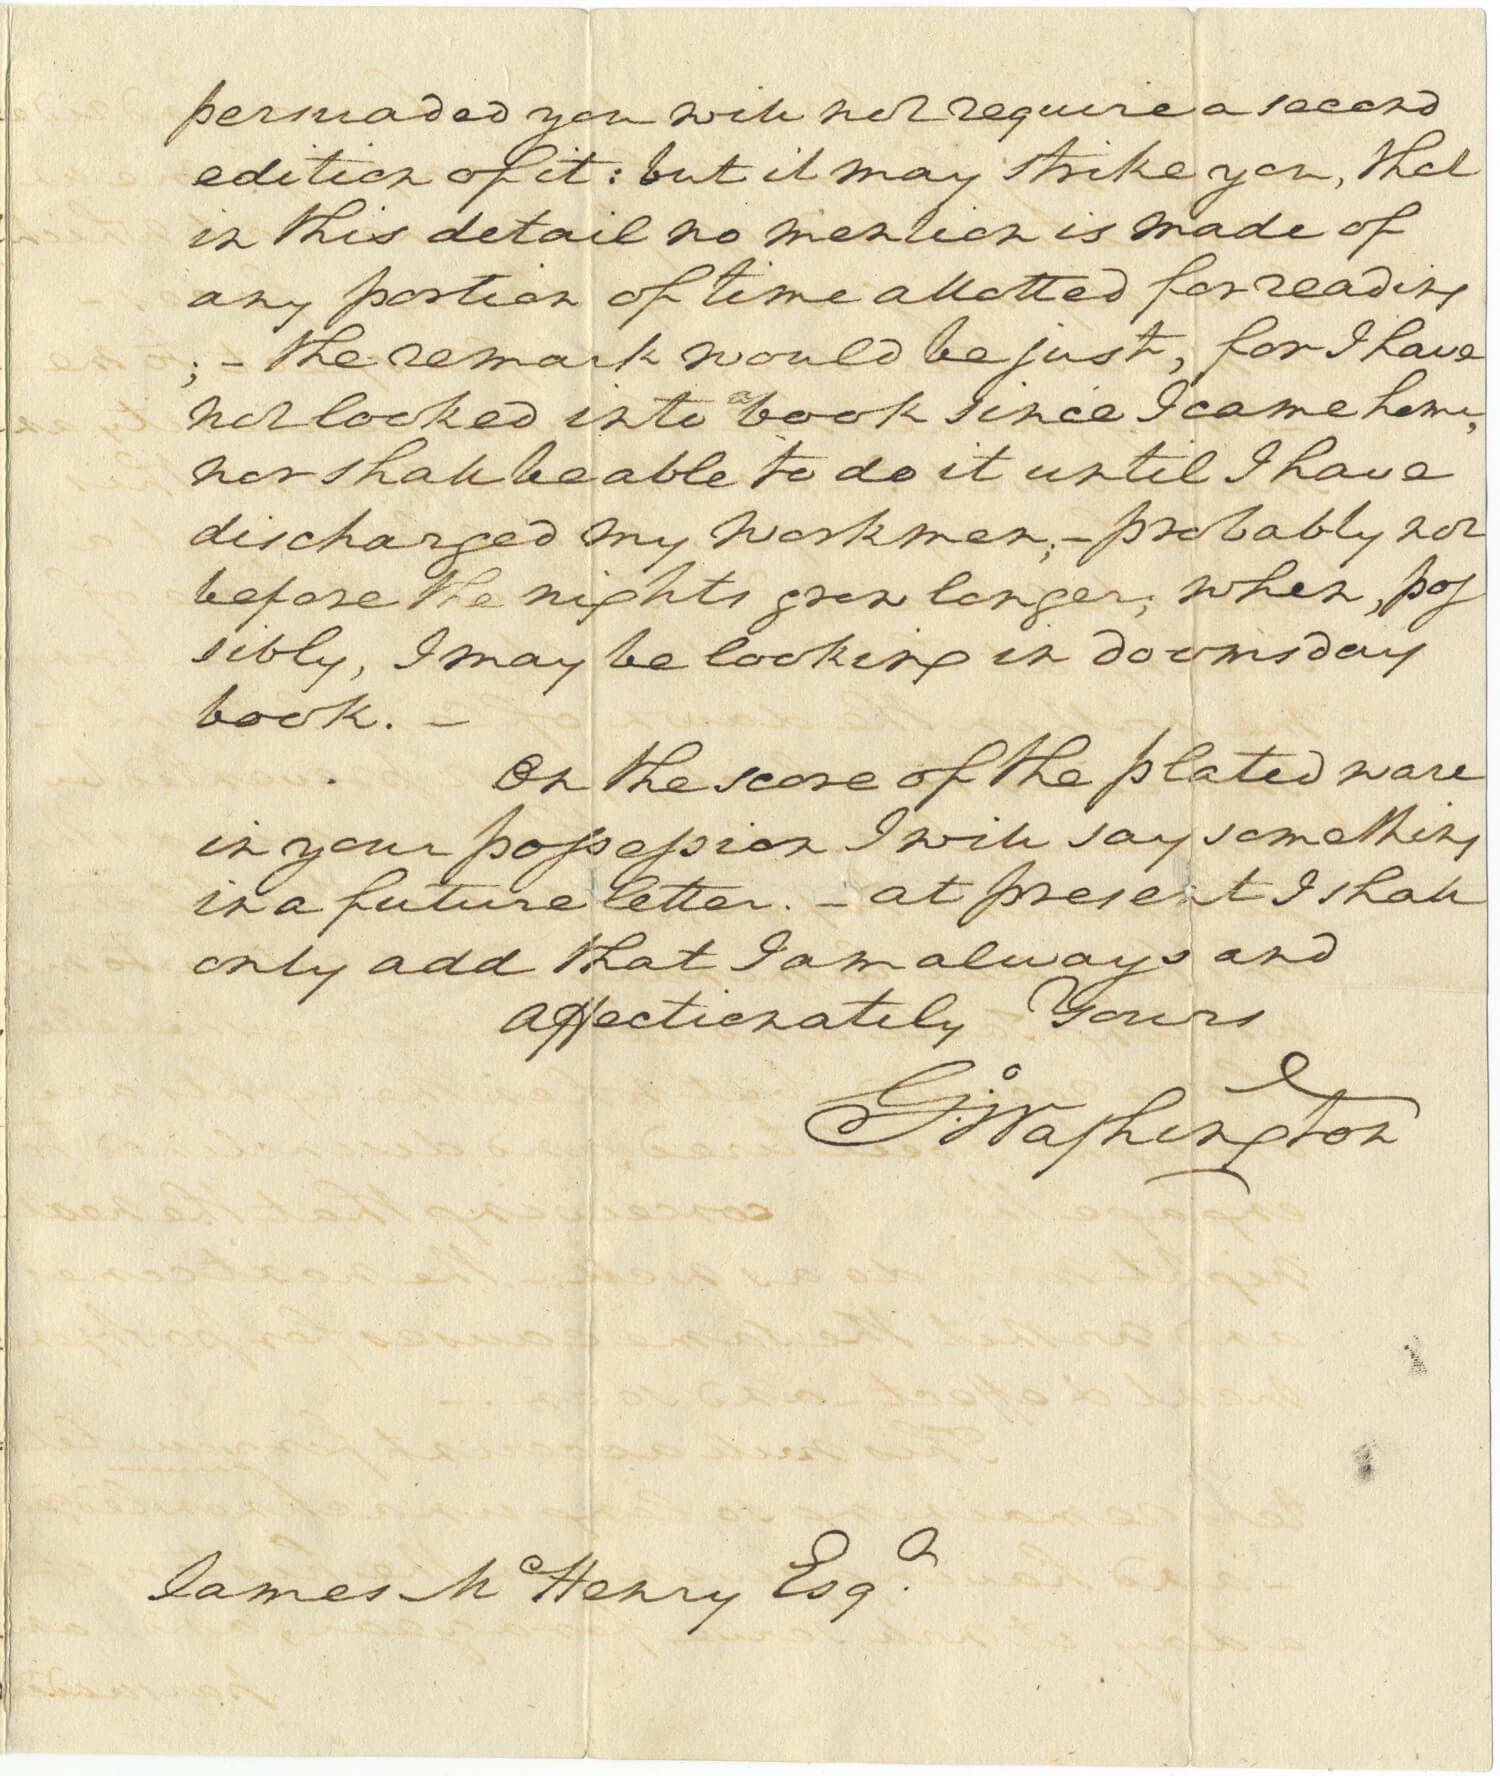 persuaded you will not require a second
edition of it: but it may strike you, that
in this detail no mention is made of
any portion of time allotted for reading
;– the remark would be just, for I have
not looked into a book since I came home,
nor shall be able to do it until I have
discharged my workmen;– probably not
before the nights grow longer; when, pos
sibly, I may be looking in doomsday
book. –
On the score of the plated ware
in your possession I will say something
in a future letter. – at present I shall
only add that I am always and
affectionately Yours
Go: Washington
James McHenry Esqr.